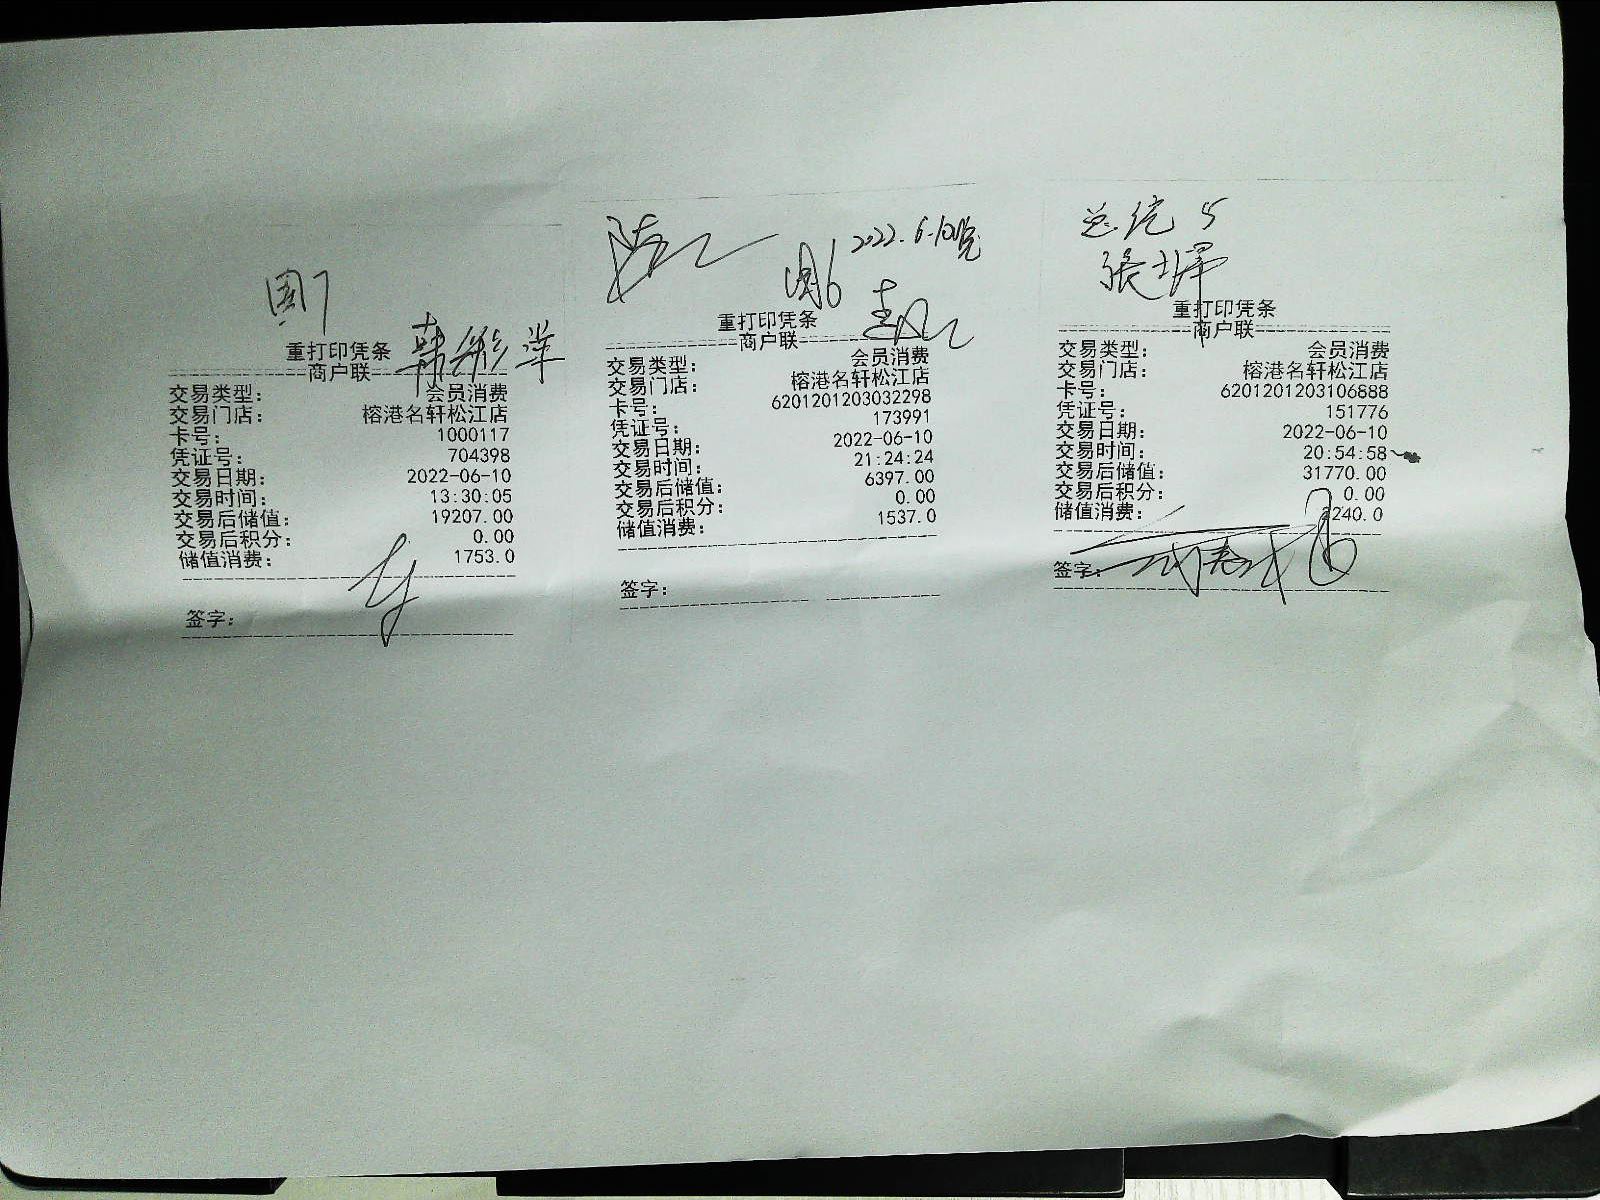 国7
重打印凭条
商户联
交易类型： 会员消费
交易门店： 榕港名轩松江店
卡号： 1000117
凭证号： 704398
交易日期： 2022-06-10
交易时间： 13:30:05
交易后储值： 19207.00
交易后积分： 0.00
储值消费： 1753.0
签字：
2022.6.10晚
国6
重打印凭条
商户联
交易类型： 会员消费
交易门店： 榕港名轩松江店
卡号： 6201201203032298
凭证号： 173991
交易日期： 2022-06-10
交易时间： 21:24:24
交易后储值： 6397.00
交易后积分： 0.00
储值消费： 1537.0
签字：
5
重打印凭条
商户联
交易类型： 会员消费
交易门店： 榕港名轩松江店
卡号： 6201201203106888
凭证号： 151776
交易日期： 2022-06-10
交易时间： 20:54:58
交易后储值： 31770.00
交易后积分： 0.00
储值消费：
签字：